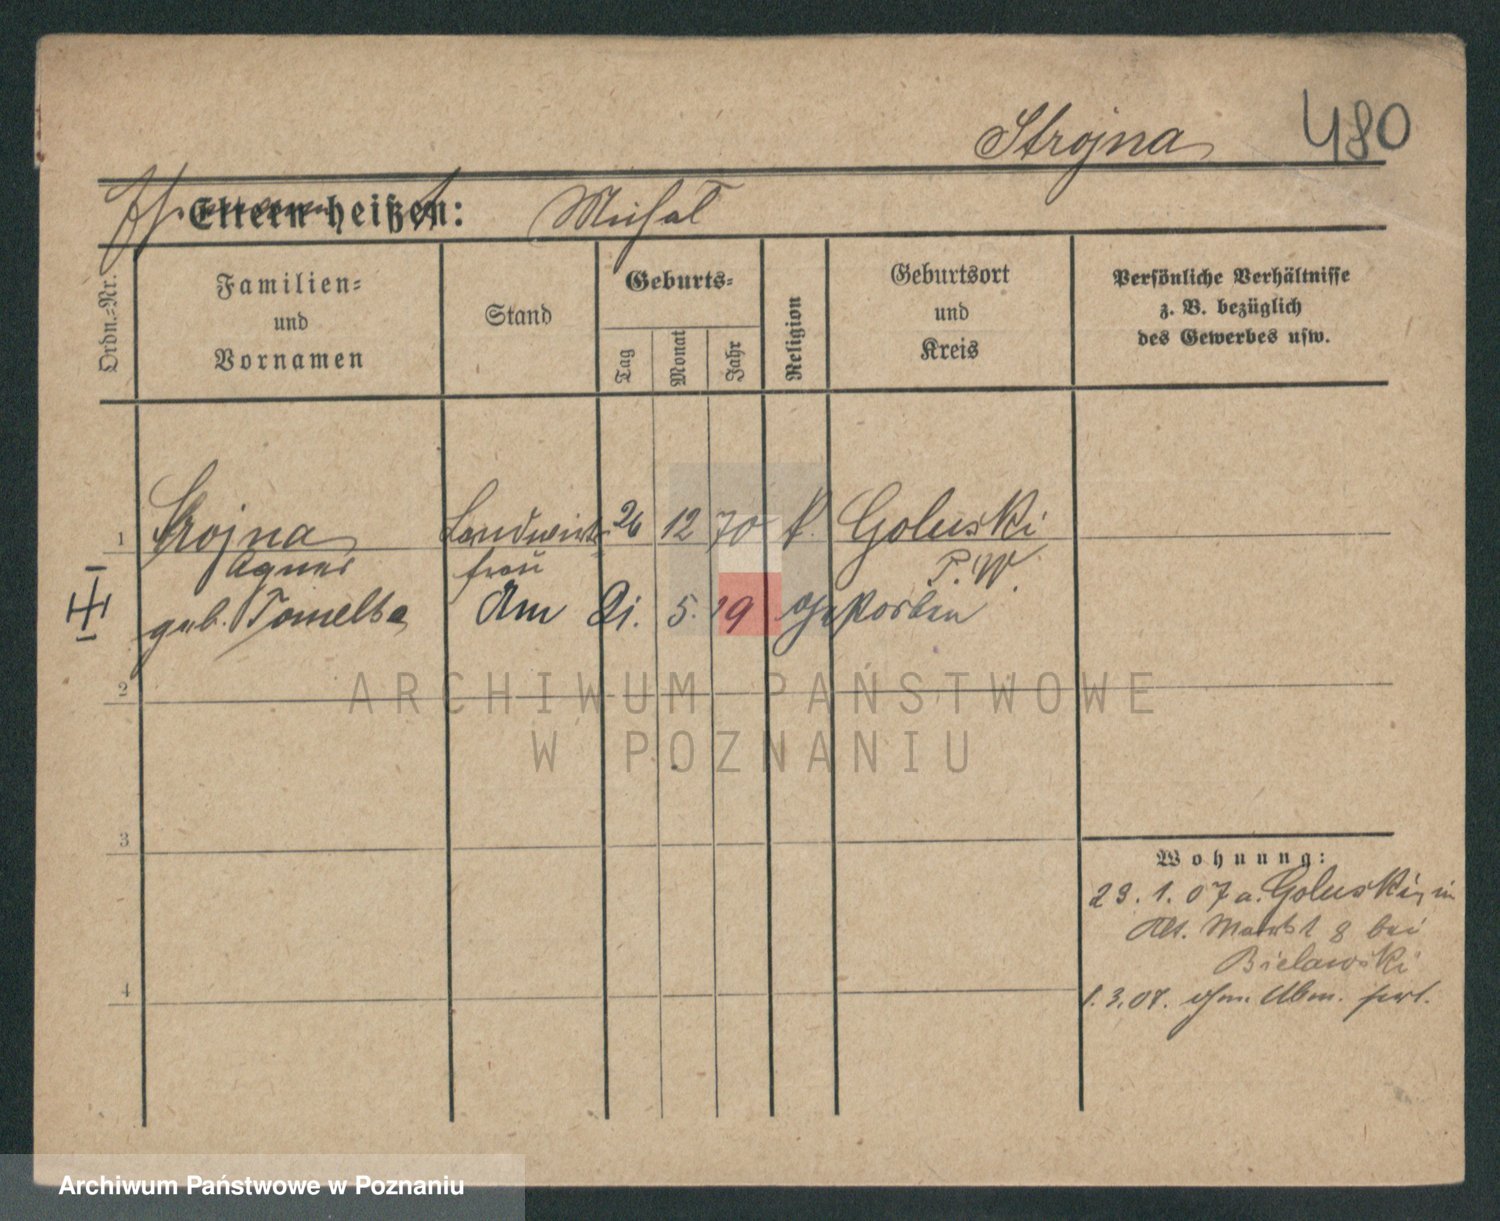 Strojna 480
Eltern heißen:
Ordn.-Nr.
Familien-
und
Vornamen
Stand
Geburts-
Tag
Monat
Jahr
Religion
Geburtsort
und
Kreis
Persönliche Verhältnisse
z. B. bezüglich
des Gewerbes usw.
1 Strojna Landwirts 26 12 70 k. Goluski
Agnes frau P. W.
geb. Am 21. 5. 19
2
3
4
Wohnung:
23. 1. 07 a. Goluski, in
Alt. Markt 8 bei
Bielawski
1. 3. 07. ohne Abm.
ARCHIWUM PAŃSTWOWE
W POZNANIU
Archiwum Państwowe w Poznaniu